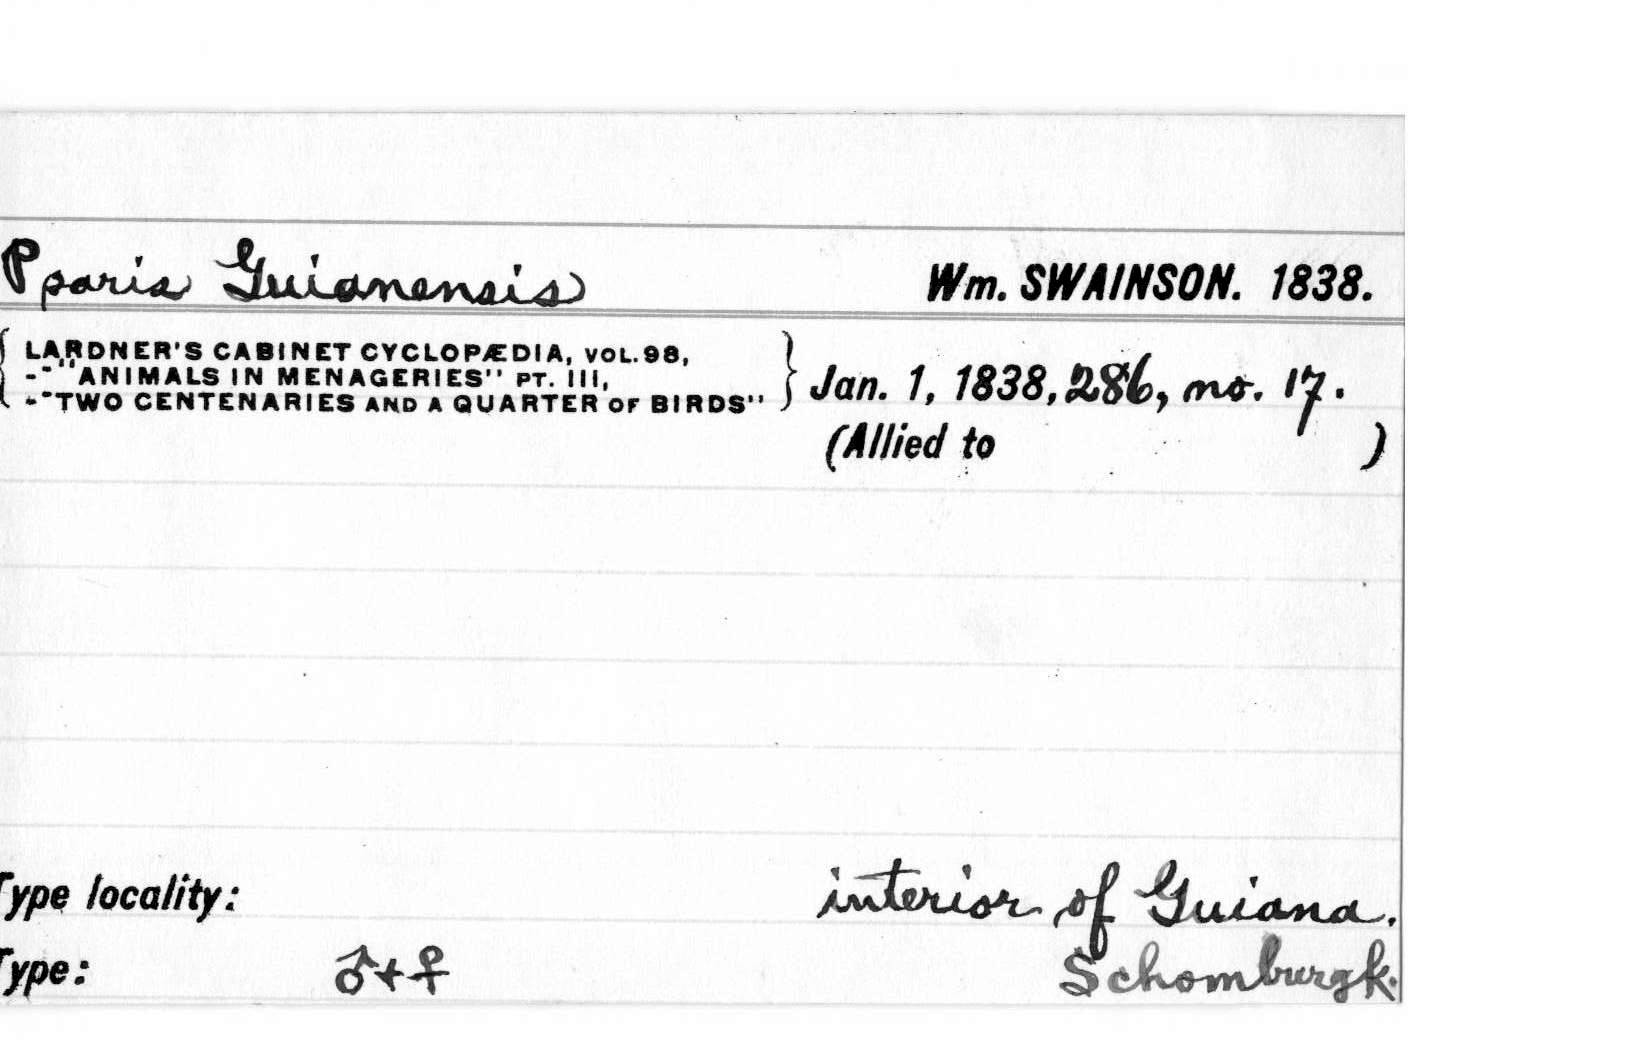 Pparis Guianensis Wm. SWAINSON. 1838.
{ LARDNER'S CABINET CYCLOPÆDIA, VOL. 98, }
-- "ANIMALS IN MENAGERIES" PT. III, Jan. 1, 1838, 286, no. 17.
-- "TWO CENTENARIES AND A QUARTER OF BIRDS"
(Allied to )
Type locality: interior of Guiana.
Type: ♂+♀ Schomburgk.